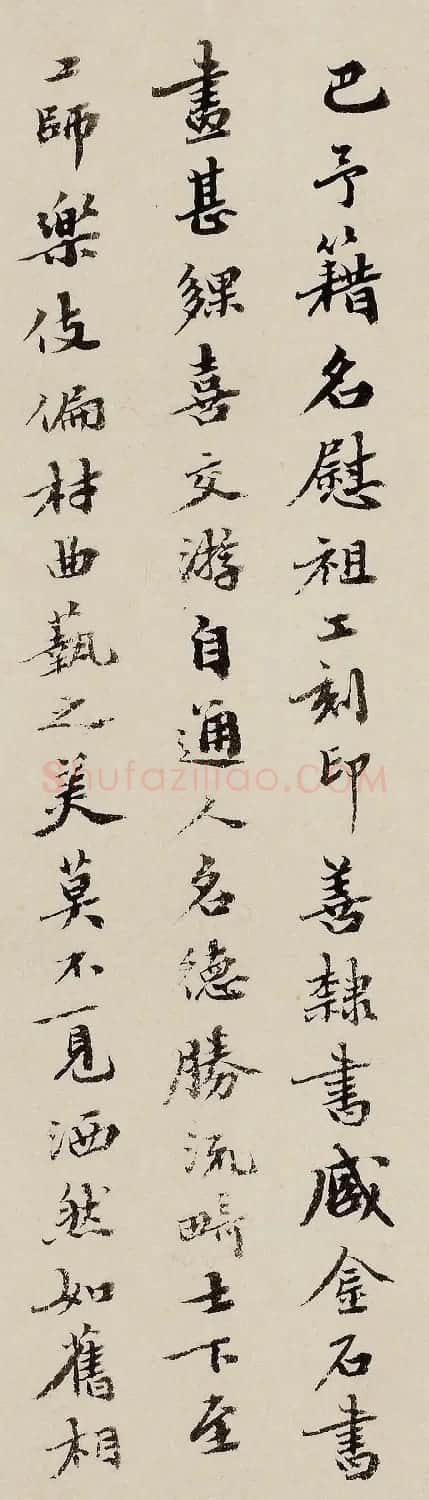 巴予籍名慰祖工刻印善隸書藏金石書
畫甚夥喜交游自通人名德勝流畸士下至
工師樂伎偏材曲藝之美莫不一見洒然如舊相
Shufaziliao.COM